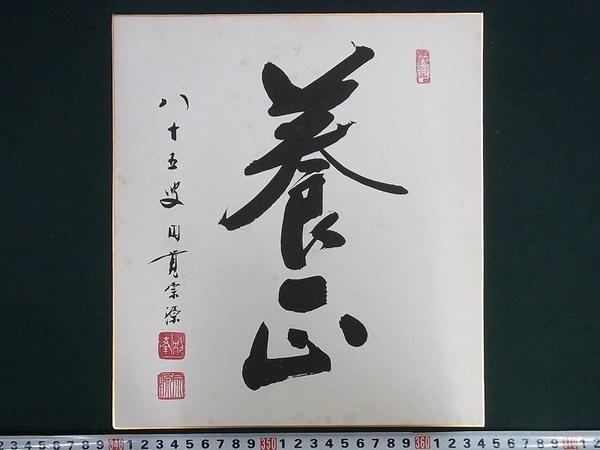 養正
八十五叟 円覚宗源
2 3 4 5 6 7 8 9 340 1 2 3 4 5 6 7 8 9 350 1 2 3 4 5 6 7 8 9 360 1 2 3 4 5 6 7 8 9